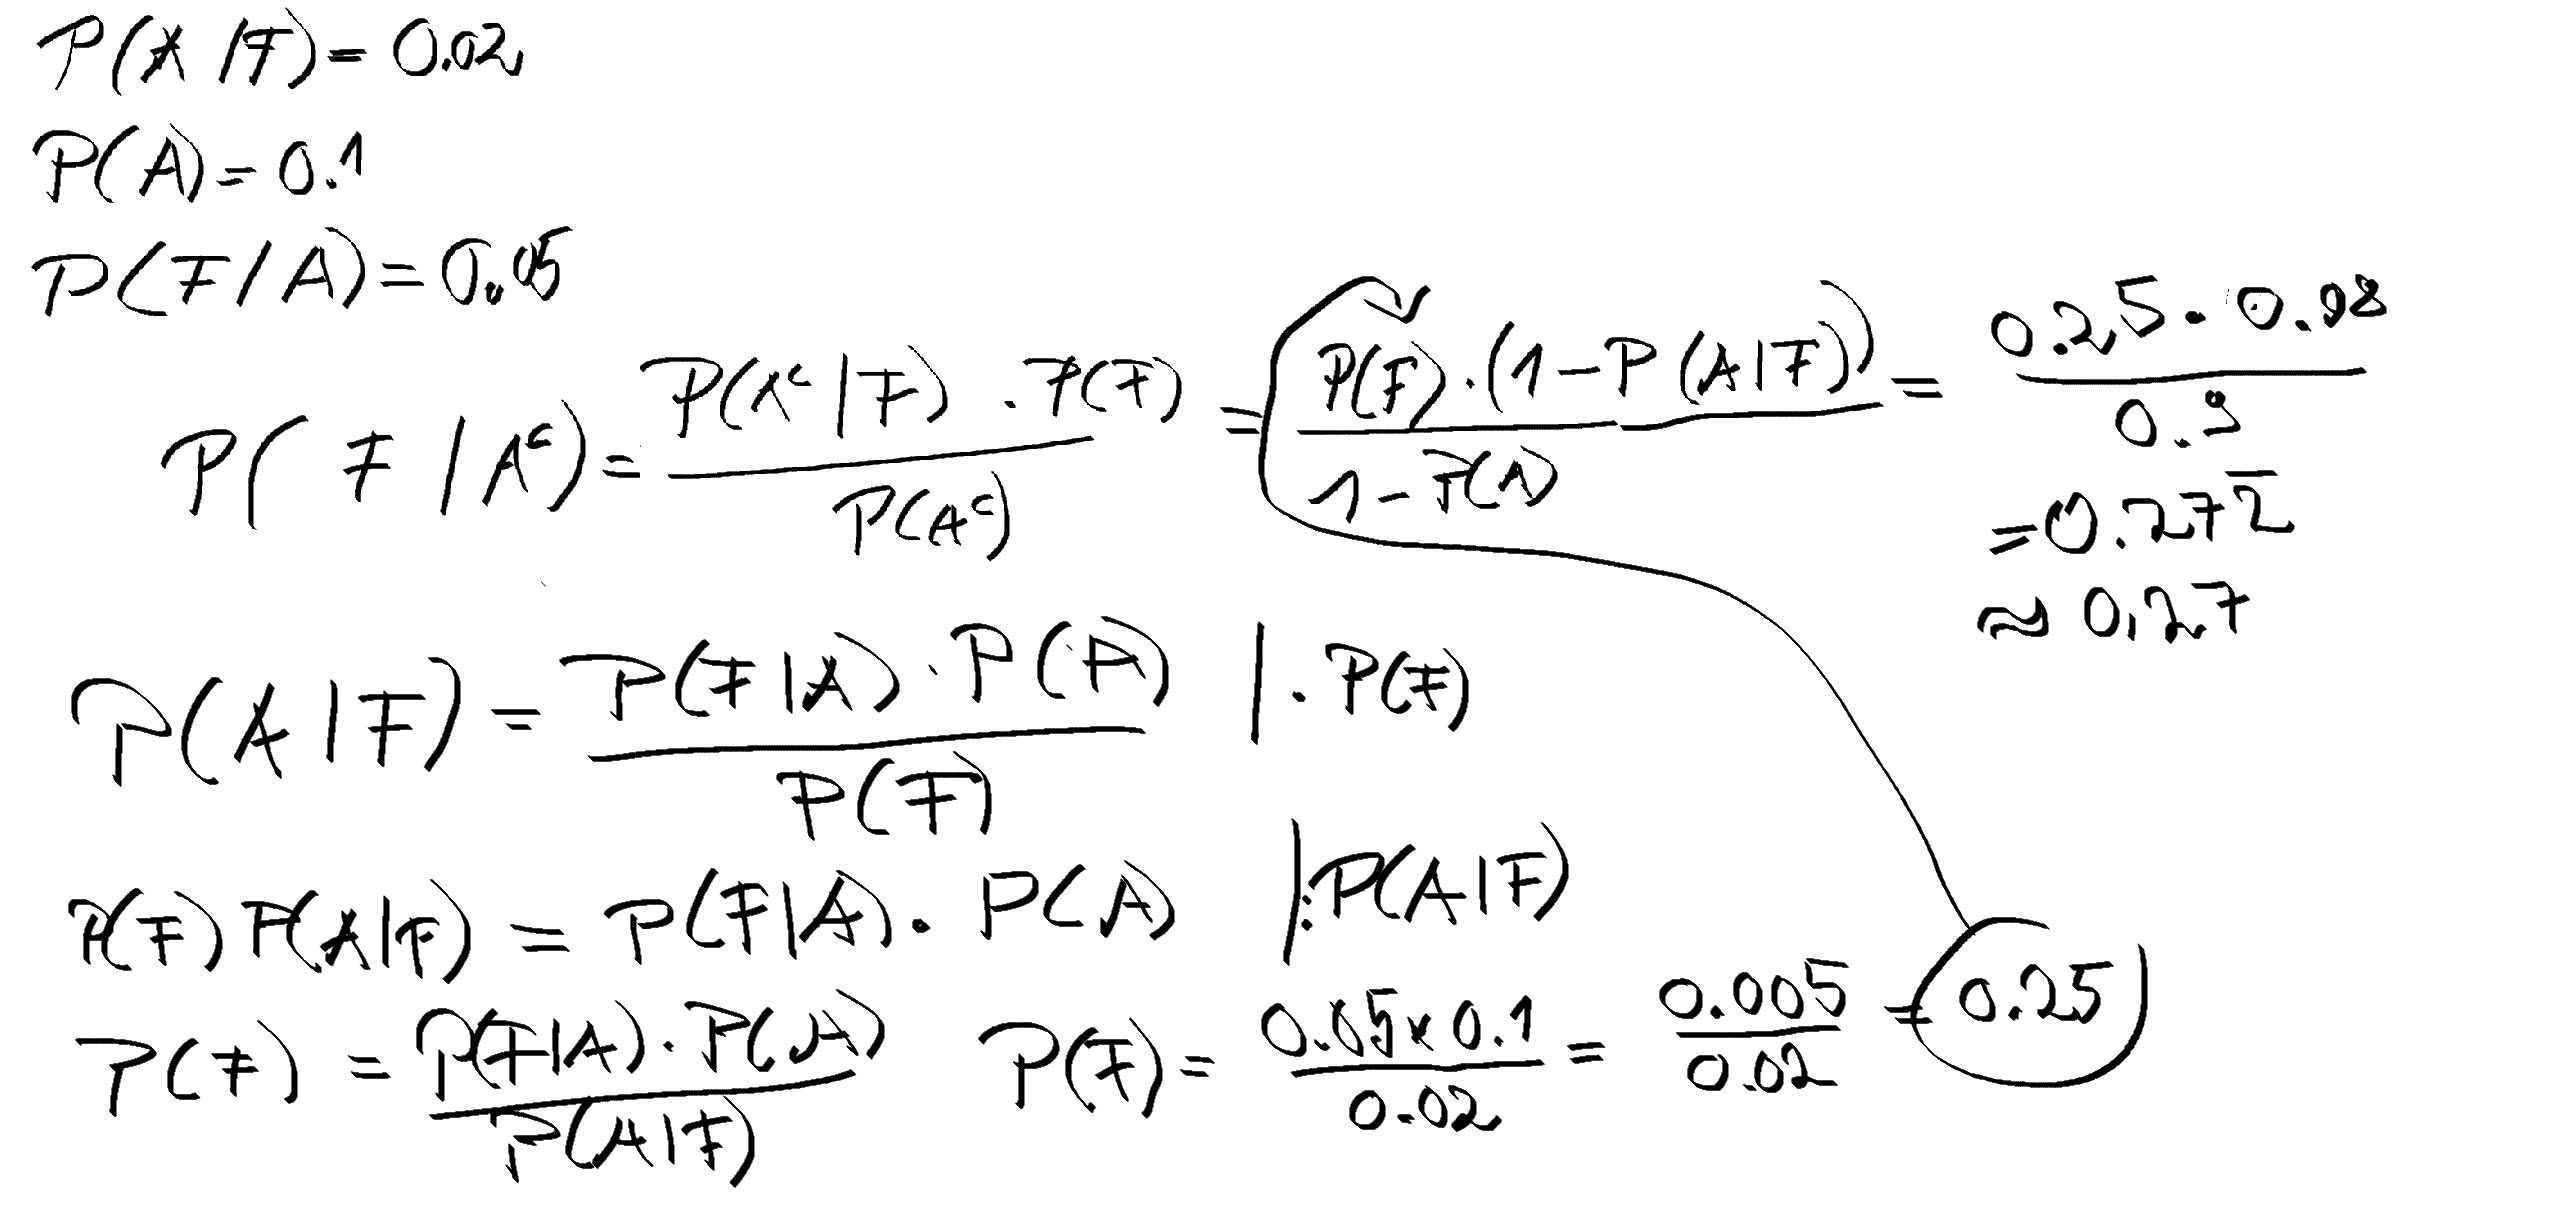 P(A/F) = 0.02
P(A) = 0.1
P(F/A) = 0.05
P(F/Aᶜ) = P(Aᶜ|F) · P(F) / P(Aᶜ) = P(F) · (1 - P(A|F)) / 1 - P(A) = 0.25 · 0.98 / 0.9
= 0.272̅
≈ 0.27
P(A|F) = P(F|A) · P(A) / P(F) | · P(F)
P(F) P(A|F) = P(F|A) · P(A) | : P(A|F)
P(F) = P(F|A) · P(A) / P(A|F) P(F) = 0.05 x 0.1 / 0.02 = 0.005 / 0.02 = 0.25